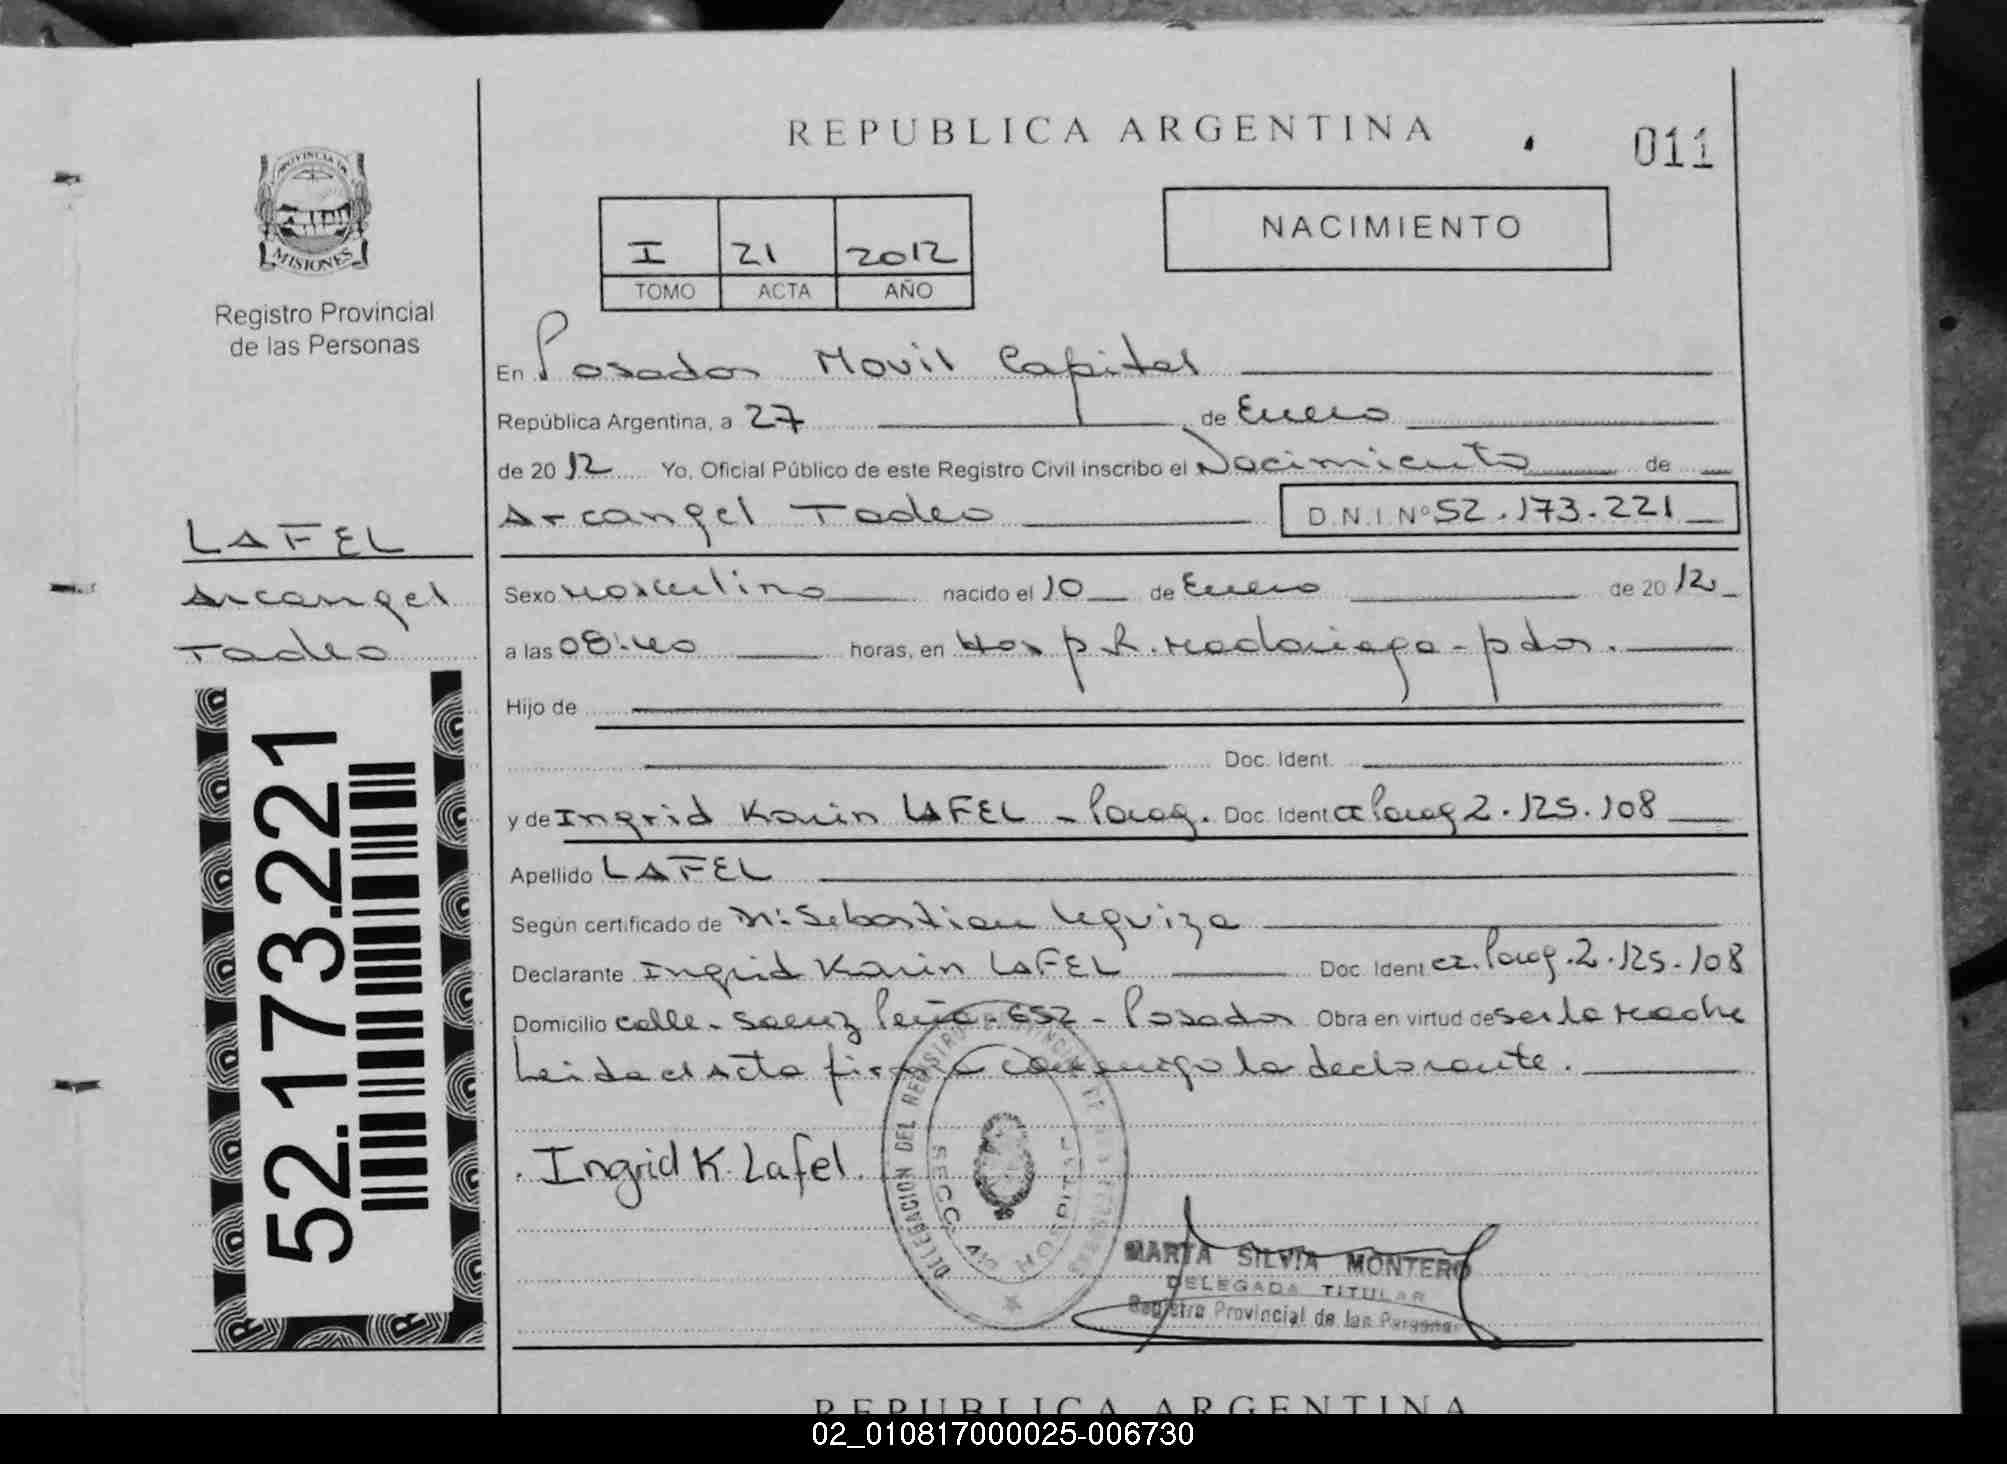 REPUBLICA ARGENTINA
011
PROVINCIA DE
MISIONES
Registro Provincial
de las Personas
I 21 2012
TOMO ACTA AÑO
NACIMIENTO
En Posadas Movil Capital
República Argentina, a 27 de Enero
de 20 12 Yo, Oficial Público de este Registro Civil inscribo el Nacimiento de
Arcangel Tadeo D.N.I. Nº 52.173.221
LAFEL
Arcangel
Tadeo
52.173.221
Sexo Masculino nacido el 10 de Enero de 20 12
a las 08:40 horas, en Hosp R. Madariaga - pdas.
Hijo de
Doc. Ident.
y de Ingrid Karin LAFEL - Parag. Doc. Ident CI Parag 2.125.108
Apellido LAFEL
Según certificado de Dr: Sebastian
Declarante Ingrid Karin LAFEL Doc. Ident CI. Parag. 2.125.108
Domicilio calle - Saenz Peña - 652 - Posadas Obra en virtud de ser la Madre
Leida el Acta firma conmigo la declarante.
Ingrid K. Lafel
DELEGACION DEL REGISTRO PROVINCIAL DE LAS PERSONAS
SECC. HOSPITAL
MARTA SILVIA MONTERO
DELEGADA TITULAR
Registro Provincial de las Personas
REPUBLICA ARGENTINA
02_010817000025-006730